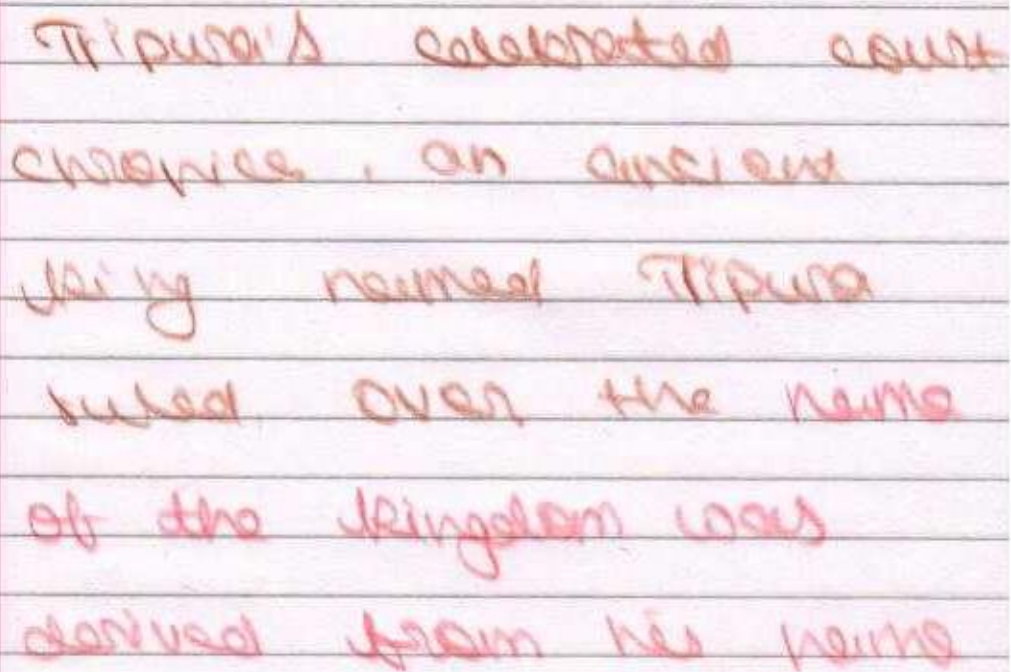 Tripura's celebrated court
chronice, an ancient
king named Tripura
ruled over the name
of the kingdom was
derived from his name